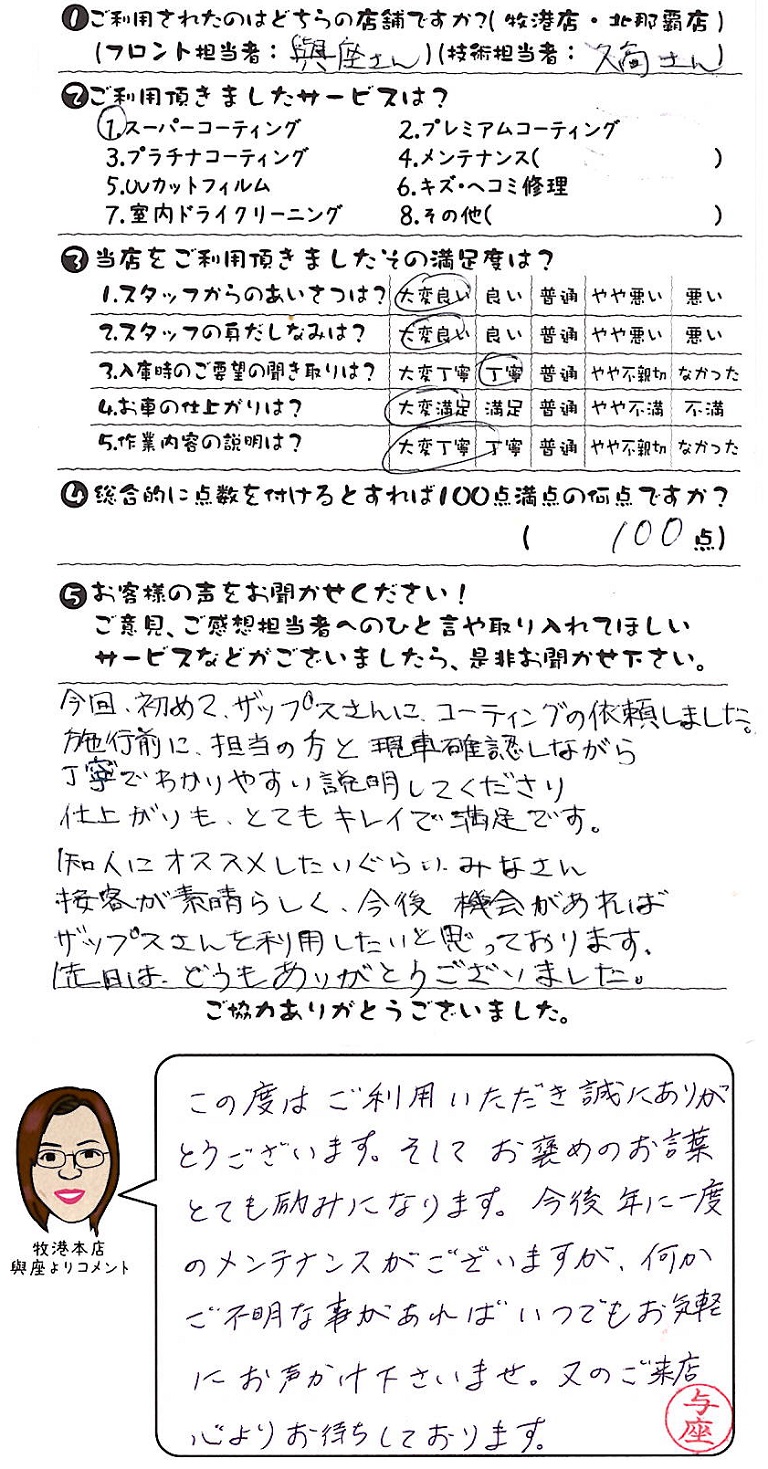 ❶ご利用されたのはどちらの店舗ですか?(牧港店・北那覇店)
(フロント担当者：與座さん)(技術担当者：久高さん)
❷ご利用頂きましたサービスは?
1.スーパーコーティング 2.プレミアムコーティング
3.プラチナコーティング 4.メンテナンス( )
5.UVカットフィルム 6.キズ・ヘコミ修理
7.室内ドライクリーニング 8.その他( )
❸当店をご利用頂きましたその満足度は?
1.スタッフからのあいさつは? 大変良い 良い 普通 やや悪い 悪い
2.スタッフの身だしなみは? 大変良い 良い 普通 やや悪い 悪い
3.入庫時のご要望の聞き取りは? 大変丁寧 丁寧 普通 やや不親切 なかった
4.お車の仕上がりは? 大変満足 満足 普通 やや不満 不満
5.作業内容の説明は? 大変丁寧 丁寧 普通 やや不親切 なかった
❹総合的に点数を付けるとすれば100点満点の何点ですか?
( 100点)
❺お客様の声をお聞かせください!
ご意見、ご感想担当者へのひと言や取り入れてほしい
サービスなどがございましたら、是非お聞かせ下さい。
今回、初めて、ザップスさんに、コーティングの依頼しました。
施行前に、担当の方と現車確認しながら
丁寧でわかりやすい説明してくださり
仕上がりも、とてもキレイで満足です。
知人にオススメしたいぐらい、みなさん
接客が素晴らしく、今後 機会があれば
ザップスさんを利用したいと思っております、
先日は、どうもありがとうございました。
ご協力ありがとうございました。
この度はご利用いただき誠にありが
とうございます。そしてお褒めのお言葉
とても励みになります。今後年に一度
のメンテナンスがございますが、何か
ご不明な事があればいつでもお気軽
にお声かけ下さいませ。又のご来店
心よりお待ちしております。
与座
牧港本店
與座よりコメント